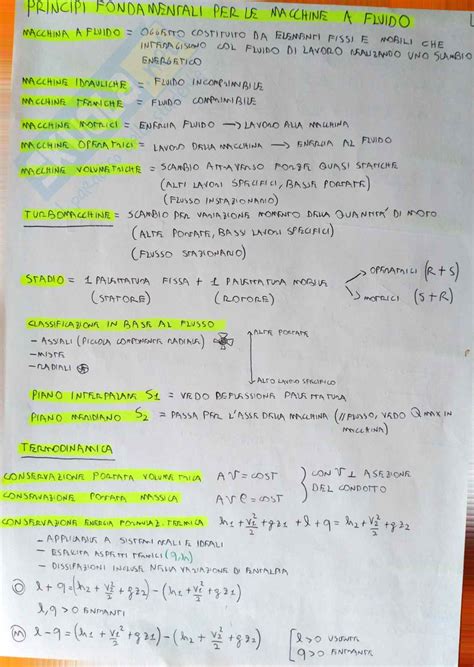 PRINCIPI FONDAMENTALI PER LE MACCHINE A FLUIDO
MACCHINA A FLUIDO = OGGETTO COSTITUITO DA ELEMENTI FISSI E MOBILI CHE
INTERAGISCONO COL FLUIDO DI LAVORO REALIZZANDO UNO SCAMBIO
ENERGETICO
MACCHINE IDRAULICHE = FLUIDO INCOMPRIMIBILE
MACCHINE TERMICHE = FLUIDO COMPRIMIBILE
MACCHINE MOTRICI = ENERGIA FLUIDO → LAVORO ALLA MACCHINA
MACCHINE OPERATRICI = LAVORO DELLA MACCHINA → ENERGIA AL FLUIDO
MACCHINE VOLUMETRICHE = SCAMBIO ATTRAVERSO FORZE QUASI STATICHE
(ALTI LAVORI SPECIFICI, BASSE PORTATE)
(FLUSSO INSTAZIONARIO)
TURBOMACCHINE = SCAMBIO PER VARIAZIONE MOMENTO DELLA QUANTITA' DI MOTO
(ALTE PORTATE, BASSI LAVORI SPECIFICI)
(FLUSSO STAZIONARIO)
STADIO = 1 PALETTATURA FISSA + 1 PALETTATURA MOBILE
OPERATRICI (R+S)
(STATORE) (ROTORE)
MOTRICI (S+R)
CLASSIFICAZIONE IN BASE AL FLUSSO
- ASSIALI (PICCOLA COMPONENTE RADIALE)
ALTE PORTATE
- MISTE
- RADIALI
ALTO LAVORO SPECIFICO
PIANO INTERPALARE S1 = VEDO DEFLESSIONE PALETTATURA
PIANO MERIDIANO S2 = PASSA PER L'ASSE DELLA MACCHINA (// FLUSSO, VEDO Q MAX IN
MACCHINA)
TERMODINAMICA
CONSERVAZIONE PORTATA VOLUMETRICA AV = COST } CON V ⊥ A SEZIONE
CONSERVAZIONE PORTATA MASSICA AVρ = COST DEL CONDOTTO
CONSERVAZIONE ENERGIA FORMULAZ. TERMICA h1 + V1²/2 + gz1 + l + q = h2 + V2²/2 + gz2
- APPLICABILE A SISTEMI REALI E IDEALI
- ESPLICITA ASPETTI TERMICI (q,h)
- DISSIPAZIONI INCLUSE NELLA VARIAZIONE DI ENTALPIA
O l + q = (h2 + V2²/2 + gz2) - (h1 + V1²/2 + gz1)
l, q > 0 ENTRANTI
M l - q = (h1 + V1²/2 + gz1) - (h2 + V2²/2 + gz2) [ l > 0 USCENTE
q > 0 ENTRANTE